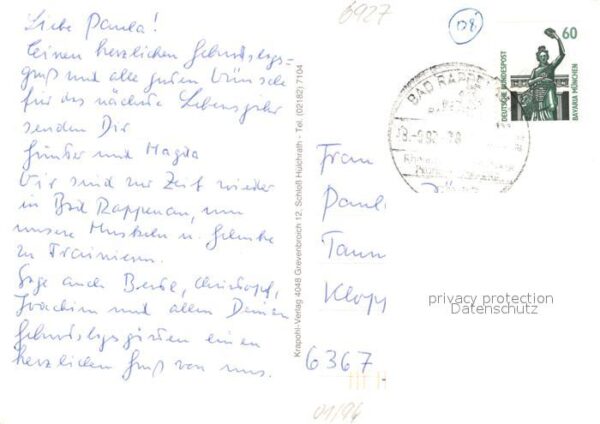 Liebe Paula!
Einen herzlichen Geburtstags=
gruß und alle guten Wünsche
für das nächste Lebensjahr
senden Dir
Günter und Magda
Wir sind zur Zeit wieder
in Bad Rappenau, um
unsere Muskeln u. Gelenke
zu Trainieren.
Sage auch Christoph,
Joachim und allen Deinen
Geburtstagsgästen einen
herzlichen Gruß von uns.
Krapohl-Verlag 4048 Grevenbroich 12, Schloß Hülchrath - Tel. (02182) 7104
6927
128
60
DEUTSCHE BUNDESPOST
BAVARIA MÜNCHEN
BAD RAPPE
Frau
Paul
Tann
Klopp
6367
privacy protection
Datenschutz
01/94